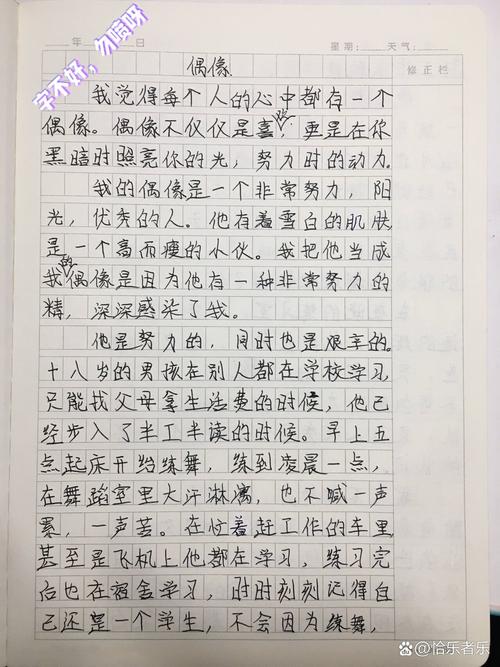 年 日 星期： 天气：
字不好，勿喷呀
修正栏
偶像
我觉得每个人的心中都有一个
偶像。偶像不仅仅是喜欢，更是在你
黑暗时照亮你的光，努力时的动力
我的偶像是一个非常努力，阳
光，优秀的人。他有着雪白的肌肤
是一个高而瘦的小伙。我把他当成
我的偶像是因为他有一种非常努力的
精，深深感染了我。
他是努力的，同时也是艰辛的。
十八岁的男孩在别人都在学校学习
只能找父母拿生活费的时候，他已
经步入了半工半读的时候。早上五
点起床开始练舞，练到凌晨一点，
在舞蹈室里大汗淋漓，也不喊一声
累，一声苦。在忙着赶工作的车里
甚至是飞机上他都在学习，练习完
后也在宿舍学习，时时刻刻记得自
己还是一个学生，不会因为练舞，
@恰乐者乐